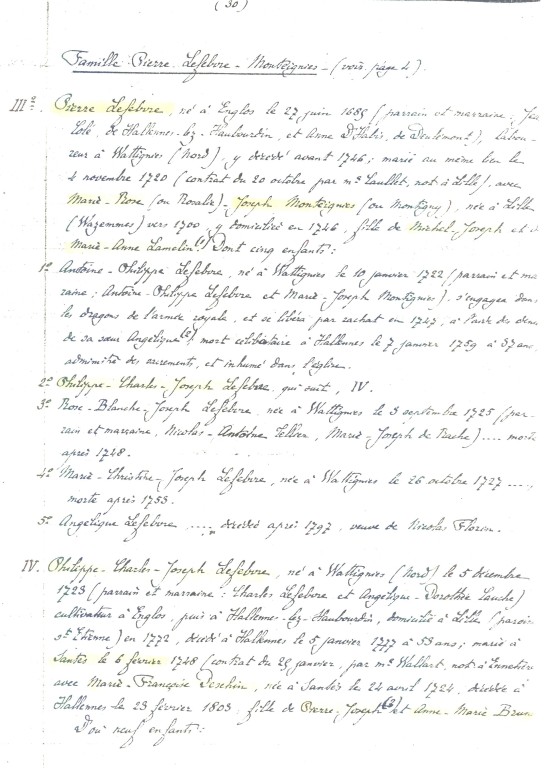 (30)
Famille Pierre Lefebvre - Monteignies - (voir page 4).
III e. Pierre Lefebvre, né à Englos le 27 juin 1689 (parrain et marraine: Jean
Lolé, de Hallennes-lez-Haubourdin, et Anne D'Halis, de Deulémont), labou-
reur à Wattignies (Nord), y décédé avant 1746; marié au même lieu le
4 novembre 1720 (contrat du 20 octobre par me Laullet, not. à Lille), avec
Marie-Rose (ou Rosalie)-Joseph Monteignies (ou Montigny), née à Lille
(Wazemmes) vers 1700, y domiciliée en 1746, fille de Michel-Joseph et de
Marie-Anne Lamelin. (1) Dont cinq enfants:
1° Antoine-Philippe Lefebvre, né à Wattignies le 10 janvier 1722 (parrain et mar-
raine: Antoine-Philippe Lefebvre et Marie-Joseph Montignies), s'engagea dans
les dragons de l'armée royale, et se libéra par rachat en 1747, à l'aide des deniers
de sa sœur Angélique (2), mort célibataire à Hallennes le 7 janvier 1759 à 37 ans,
administré des sacrements, et inhumé dans l'église.
2° Philippe-Charles-Joseph Lefebvre, qui suit, IV.
3° Rose-Blanche-Joseph Lefebvre, née à Wattignies le 3 septembre 1725 (par-
rain et marraine, Nicolas-Antoine, Marie-Joseph de) .... morte
après 1748.
4° Marie-Christine-Joseph Lefebvre, née à Wattignies le 26 octobre 1727 ....,
morte après 1753.
5° Angélique Lefebvre, ...., décédée après 1797, veuve de Nicolas Floren.
IV. Philippe-Charles-Joseph Lefebvre, né à Wattignies (Nord) le 5 décembre
1723 (parrain et marraine: Charles Lefebvre et Angélique-Dorothée)
cultivateur à Englos, puis à Hallennes-lez-Haubourdin, domicilié à Lille (paroisse
St Etienne) en 1772, décédé à Hallennes le 5 janvier 1777 à 53 ans; marié à
Santes le 6 février 1748 (contrat du 29 janvier, par me Wallart, not. à Ennetières)
avec Marie-Françoise Deschin, née à Santes le 24 avril 1724, décédée à
Hallennes le 23 février 1803, fille de Pierre-Joseph (3) et Anne-Marie Brun
D'où neuf enfants: